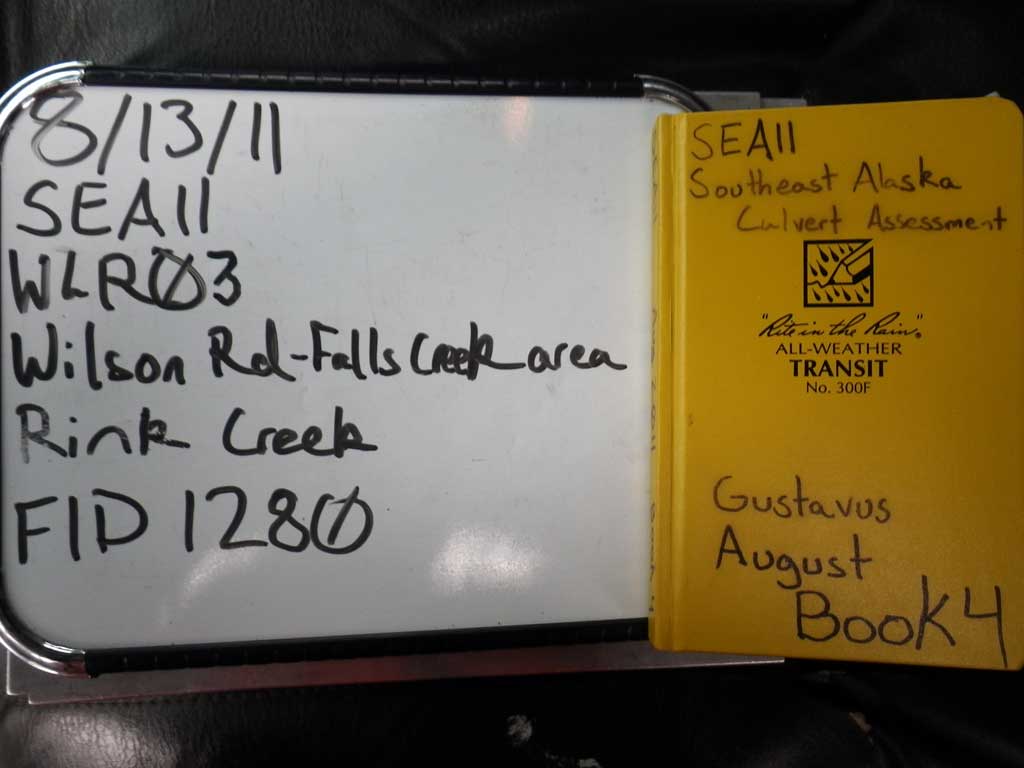 8/13/11
SEA11
WLR03
Wilson Rd-Falls Creek area
Rink Creek
FID 1280
SEA11
Southeast Alaska
Culvert Assessment
"Rite in the Rain"®
ALL-WEATHER
TRANSIT
No. 300F
Gustavus
August
Book 4